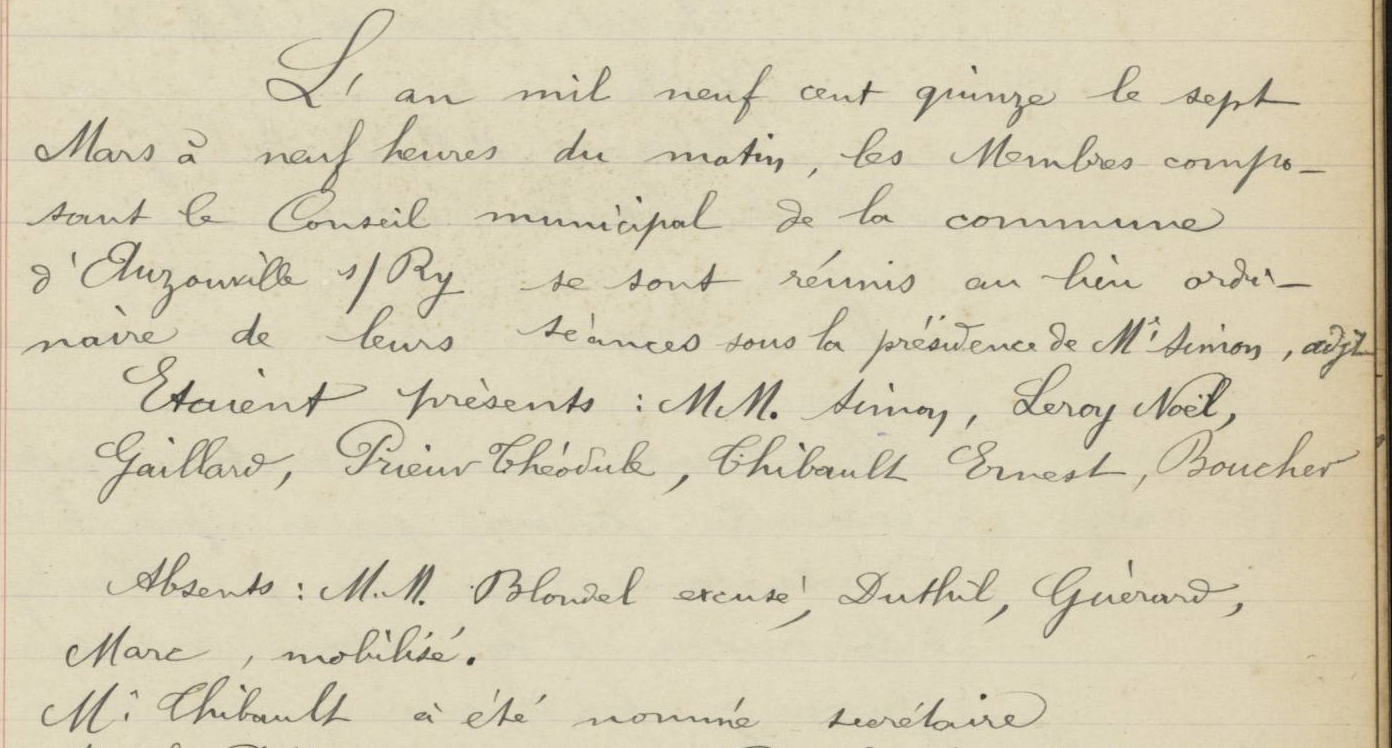 L' an mil neuf cent quinze le sept
Mars à neuf heures du matin, les Membres compo-
sant le Conseil municipal de la commune
d'Auzouville s/ Ry se sont réunis au lieu ordi-
naire de leurs séances sous la présidence de Mr Simon, adjt
Etaient présents : MM. Simon, Leroy Noël,
Gaillard, Prieur Théodule, Thibault Ernest, Boucher
Absents : M.M. Blondel excusé, Duthil, Guérard,
Marc, mobilisé.
Mr Thibault a été nommé secrétaire